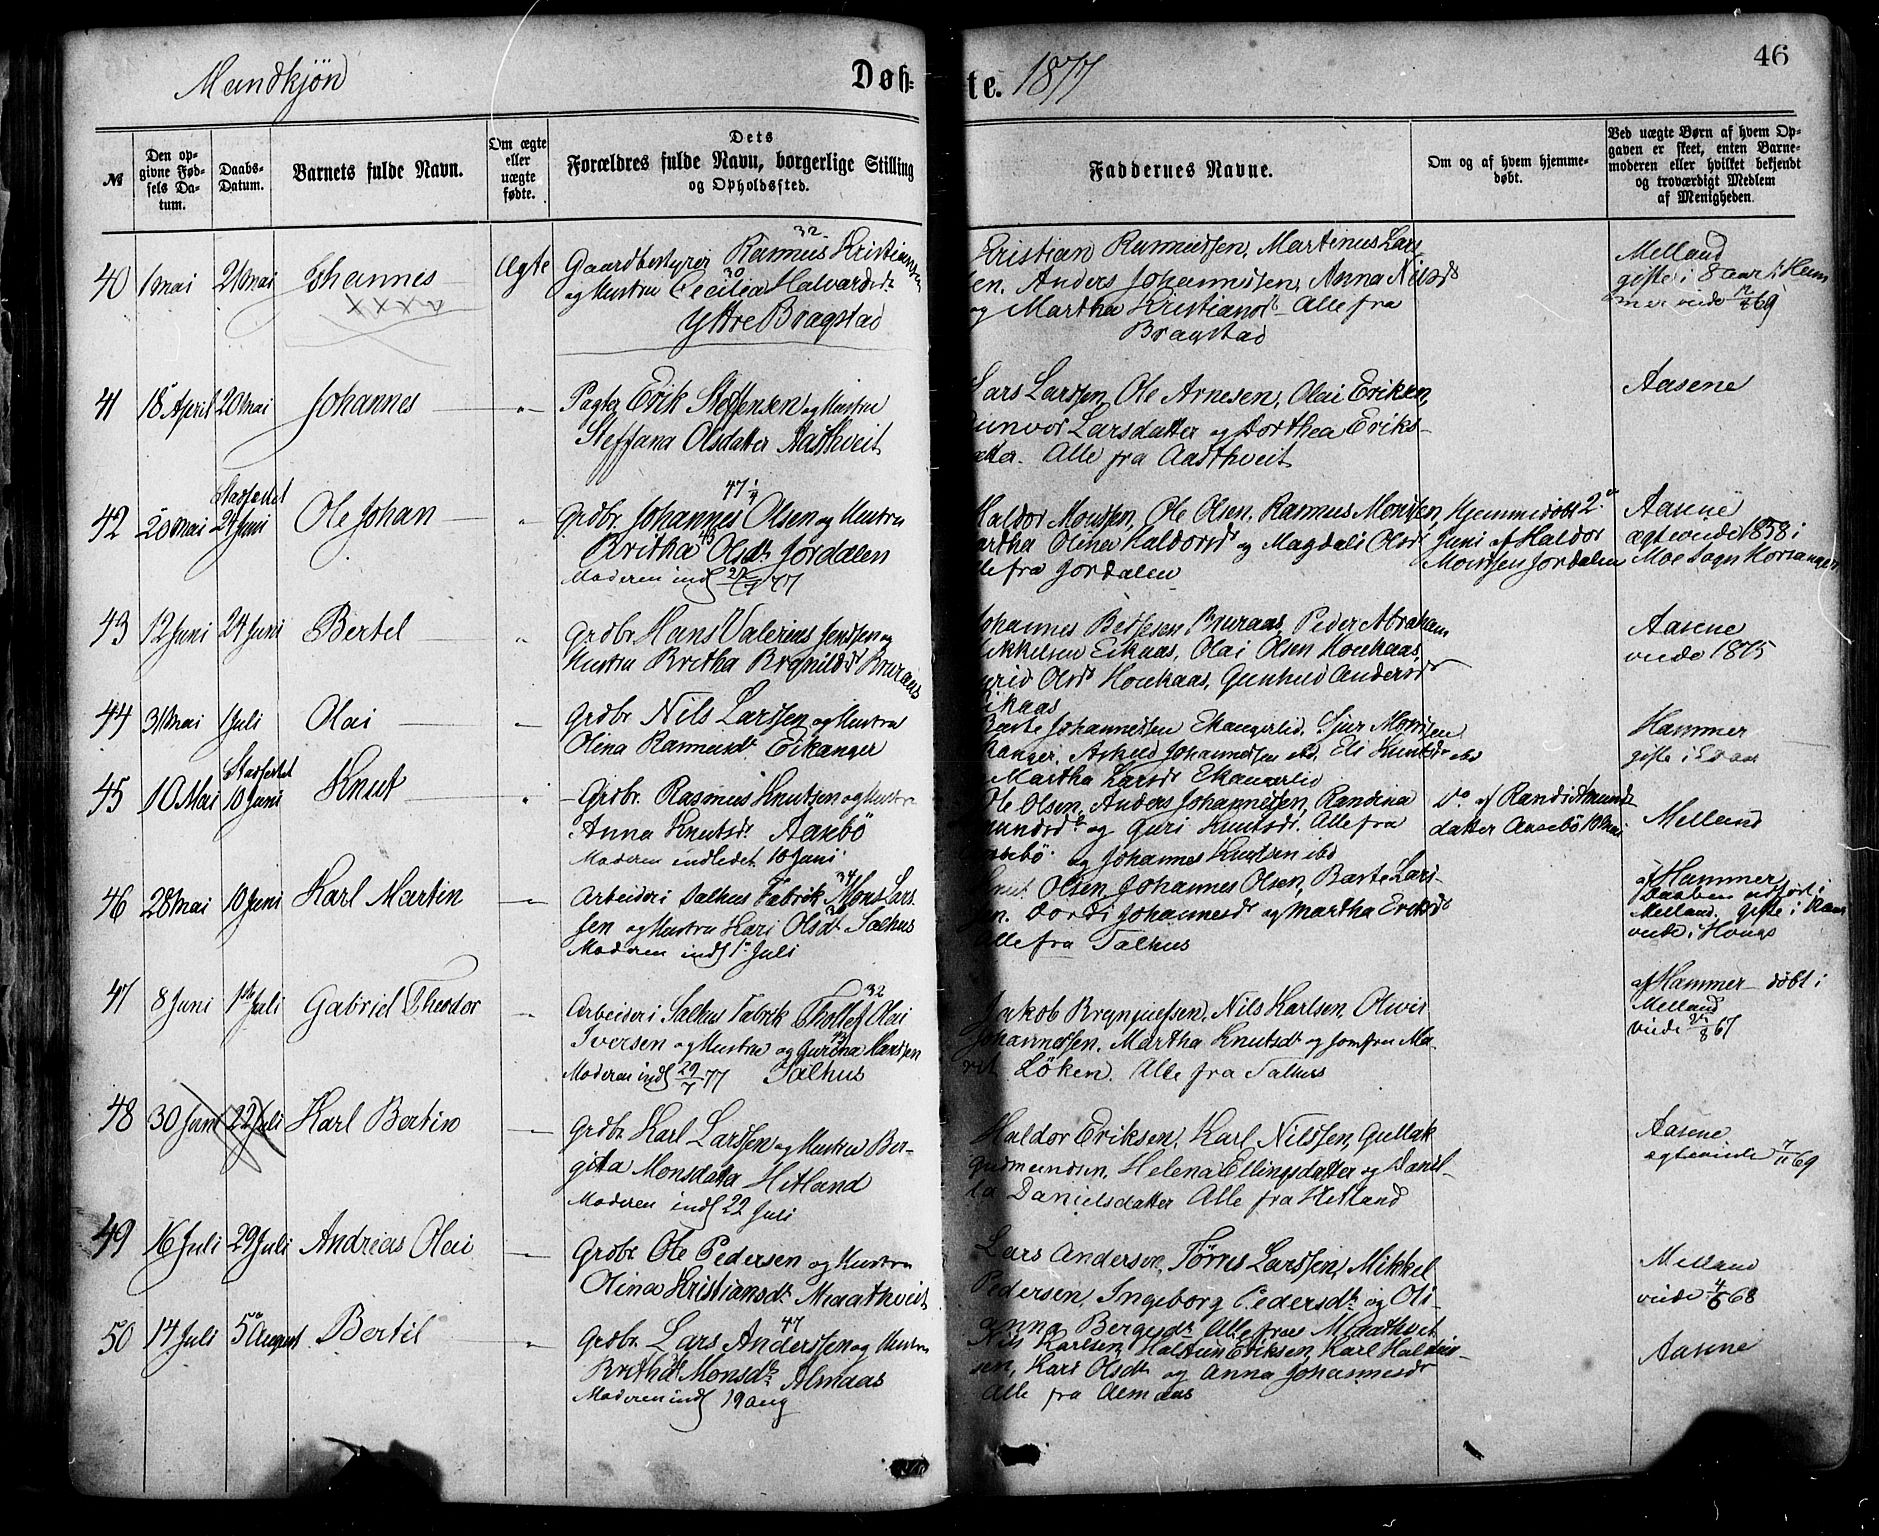 Mandkjøn
Døb=
te. 1877
46
№
Den opgivne Fødsels Datum.
Daabs-Datum.
Barnets fulde Navn.
Om ægte eller uægte fødte.
Dets Forældres fulde Navn, borgerlige Stilling og Opholdssted.
Faddernes Navne.
Om og af hvem hjemmedøbt.
Ved uægte Børn af hvem Opgaven er skeet, enten Barnemoderen eller hvilket bekjendt og troværdigt Medlem af Menigheden.
40 1 mai 21 mai Johannes Ægte
32
Gaardbestyrer Rasmus Kristiansen
30
og Hustru Cecilia Halvardsdr
Yttre Bragstad
Kristian Rasmussen, Martinus Lars
sen. Anders Johannessen, Anna Nilsdr
og Martha Kristiansdr Alle fra
Bragstad
Melland
gifte i 8 aar i Ham
mer viede 12/6 69
41 18 April 20 mai Johannes "
Pagter Erik Steffensen og Hustru
Steffana Olsdatter Aasthveit
Lars Larssen, Ole Arnesen, Olai Eriksen,
Gunvor Larsdatter og Dorthea Eriks-
datter. Alle fra Aasthveit
Aasene
42 20 mai Stadfæstet 24 Juni Ole Johan "
47
Grdbr. Johannes Olsen og Hustru
Britha Olsdr Jordalen
Moderen indl 77
Haldor Monssen, Ole Olsen, Rasmus Monssen,
Martha Olina Haldorsdr og Magdali Olsdr
Alle fra Jordalen
Hjemmedøbt 2
Juni af Haldor
Monssen Jordalen
Aasene
ægteviede 1858 i
Moe Sogn
43 12 Juni 24 Juni Bertel "
Grdbr Hans Valerius Jenssen og
Hustru Britha Brynildsdr Bruraas
Johannes Bruraas, Peder Abraham
Mikkelsen Eikaas, Olai Olsen Houkaas,
Olsdr Houkaas, Gunhild Andersdr
Eikaas
Aasene
viede 1875
44 31 mai 1 Juli Olai
Grdbr Nils Larssen og Hustru
Olina Rasmusdr Eikanger
Johannessen Ekangerlid, Sjur Monssen
Johannessen ibd, Eli Knutsdr ibd
Martha Larsdr Ekangerlid
Hammer
gifte i
45 10 Mai Stadfæstet 10 Juni Knut "
Grdbr. Rasmus Knutsen og Hustru
Anna Knutsdr Aasebö
Moderen indledet 10 Juni
Ole Olsen, Anders Johannessen, Randina
Amundsdr og Guri Knutsdr. Alle fra
Aasebö og Johannes Knutsen ibd
Do af Randi Amunds
datter Aasebö 10 mai
Melland
46 28 mai 10 Juni Karl Martin
34
Arbeider i Salhus Fabrik Mons Lars
sen og Hustru Kari Olsdr Salhus
Moderen indl 1 Juli
Knut Olsen, Johannes Olsen, Lars-
sen. Johannesdr og Martha Eriksdr
Alle fra Salhus
af Hammer
Daaben udført i
Melland. Gifte i
viede i Hougs
47 8 Juni 1ste Juli Gabriel Theodor
32
Arbeider i Salhus Fabrik Thollef Olai
Iversen og Hustru og Gurina Hanssen
Moderen indl 29/7 77 Salhus
Jakob Brynjulfsen, Nils Karlsen, Oliver
Johannessen, Martha Knutsdr og Jomfru Ma-
rit Löken. Alle fra Salhus
af Hammer døbt i
Melland
viede 67
48 30 Juni 22 Juli Karl Bertin
Grdbr Karl Larssen og Hustru Ber-
gita Monsdatter Hitland
Moderen indl 22 Juli
Haldor Eriksen, Karl Nilssen, Gullak
Gudmundsen, Helena Ellingsdatter og Danil-
la Danielsdatter Alle fra Hitland
Aasene
ægteviede 7/11 69
49 16 Juli 29 Juli Andreas Olai
Grdbr Ole Pedersen og Hustru
Olina Kristiansdr Mjaathveit
Lars Andersen, Törres Larssen, Mikkel
Pedersen, Ingeborg Pedersdr og Oli-
anna Bergesdr Alle fra Mjaathveit
Melland
viede 4/6 68
50 14 Juli 5 August Bertil
47
Grdbr. Lars Anderssen og Hustru
Britha Monsdr Almaas
Moderen indl 19 aug
Nils Karlsen, Halsten Eriksen, Karl Haldor-
sen, Kari Olsdr og Anna Johannesdr
Alle fra Almaas
Aasene